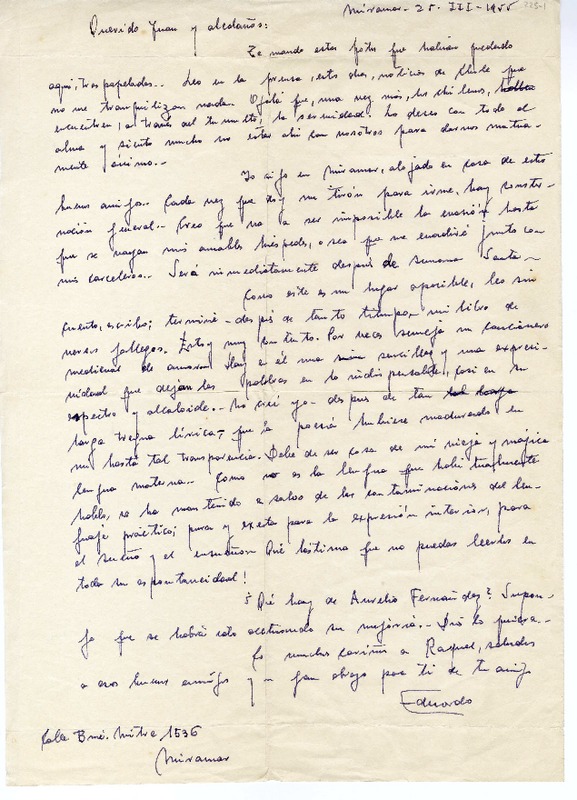 Miramar - 25 - III - 1955
Querido Juan y aledaños:
Te mando estas fotos que habían quedado
aquí, traspapeladas.. Leo en la prensa, estos días, noticias de Chile que
no me tranquilizan nada. Ojalá que, una vez más, los chilenos,
encuentren, a través del tumulto, la serenidad. Lo deseo con todo el
alma y siento mucho no estar ahí con vosotros para darnos mutua-
mente ánimo..
Yo sigo en Miramar, alojado en casa de estos
buenos amigos. Cada vez que doy un tirón para irme, hay conster-
nación general.. Creo que va a ser imposible la evasión hasta
que se vayan mis amables huéspedes, o sea que me evadiré junto con
mis carceleros.. Será inmediatamente después de Semana Santa..
Como este es un lugar apacible, leo sin
cuento, escribo; terminé - después de tanto tiempo - mi libro de
versos gallegos. Estoy muy contento. Por veces semeja un cancionero
medieval de amor. Hay en él una sencillez y una expresi-
vidad que dejan las palabras en lo indispensable, casi en su
espectro y alcaloide.. No creí yo - después de tan
larga tregua lírica, - que la poesía hubiese madurado en
mí hasta tal transparencia. Debe de ser cosa de mi vieja y mágica
lengua materna.. Como no es la lengua que habitualmente
hablo, se ha mantenido a salvo de las contaminaciones del len-
guaje práctico; pura y exacta para la expresión interior, para
el sueño y el ensueño. Qué lástima que no puedas leerlos en
toda su espontaneidad!
¿Qué hay de Aurelio Fernández? Supon-
go que se habrá ido acentuando su mejoría.. Dios lo quiera..
muchos cariños a Raquel, saludos
a esos buenos amigos y un gran abrazo para ti de tu amigo
Eduardo
Calle Bmé. Mitre 1536
Miramar